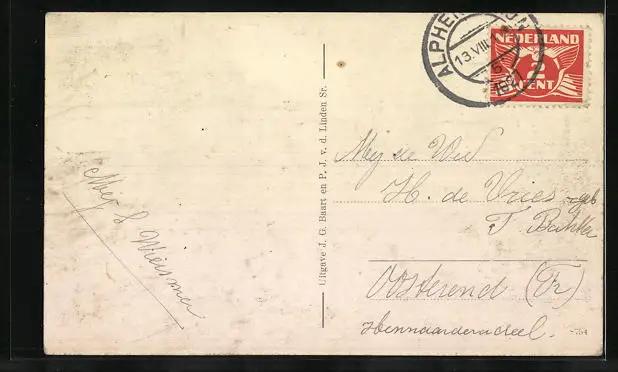 ALPHEN
13.VIII
1927
NEDERLAND
CENT
Uitgave J. G. Baart en P. J. v. d. Linden Sr.
Mej de Wed
H. de Vries geb
T. Bakker
Oosterend (Fr)
Hennaarderadeel.
Mej S Wiersma